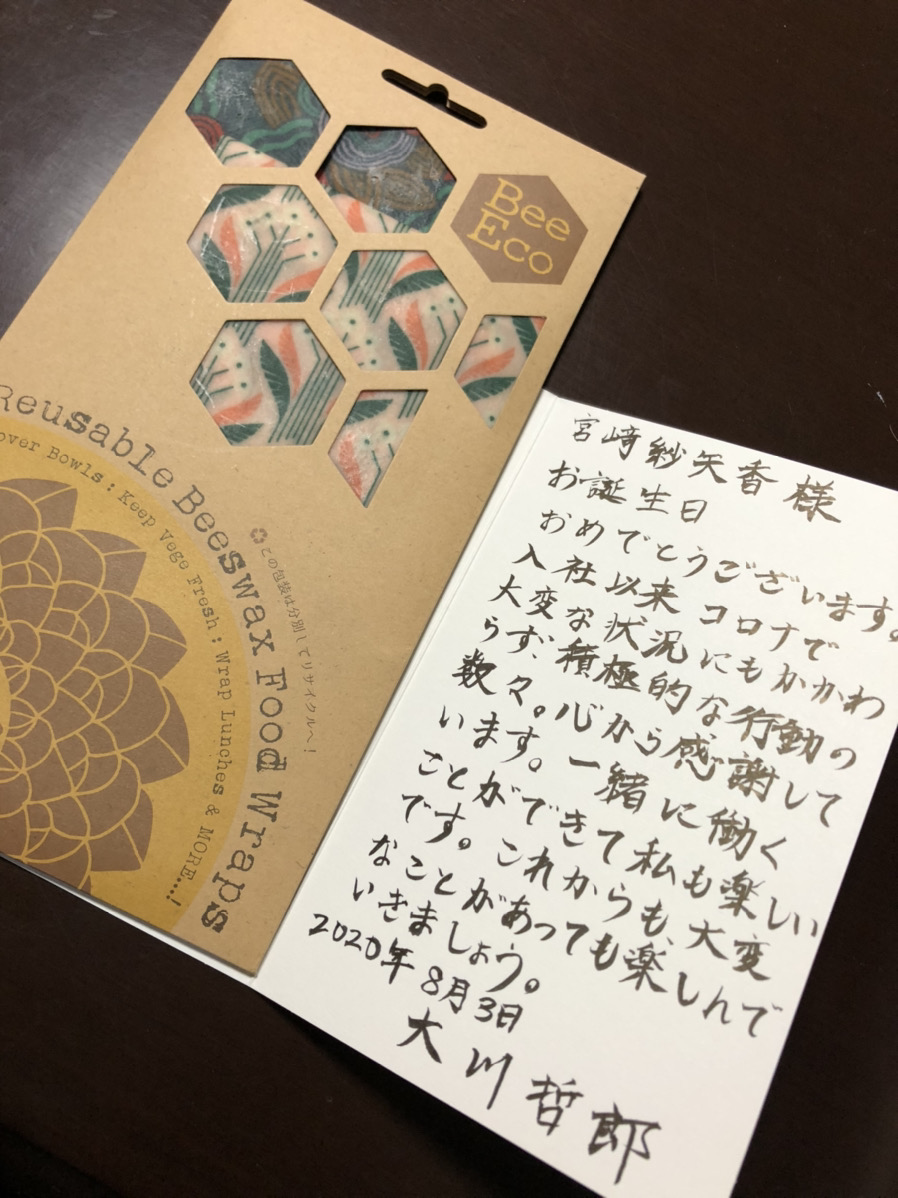 Bee
Eco
Reusable Beeswax Food Wraps
over Bowls : Keep Vege Fresh : Wrap Lunches & MORE...!
この包装は分別してリサイクルへ!
宮崎紗矢香様
お誕生日
おめでとうございます。
入社以来コロナで
大変な状況にもかかわ
らず、積極的な行動の
数々。心から感謝して
います。一緒に働く
ことができて私も楽しい
です。これからも、大変
なことがあっても楽しんで
いきましょう。
2020年8月3日
大川哲郎